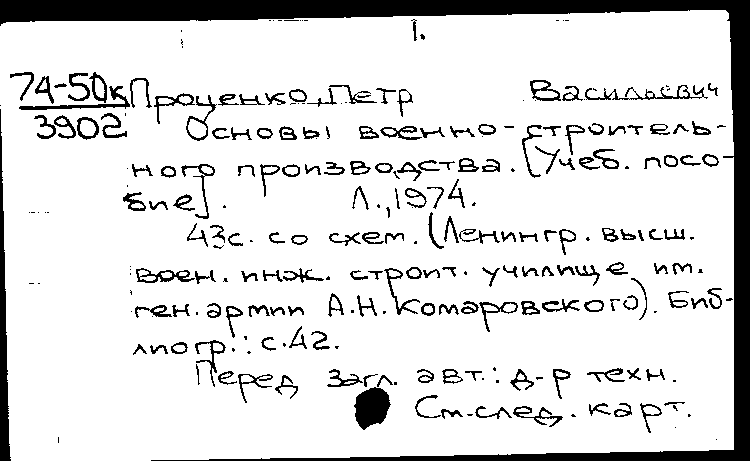 1.
74-50к Проценко, Петр Васильевич
3902 Основы военно-строитель-
ного производства. [Учеб. посо-
бие]. Л., 1974.
43с. со схем. (Ленингр. высш.
воен. инж. строит. училище им.
ген. армии А.Н. Комаровского). Биб-
лиогр.: с.42.
Перед загл. авт.: д-р техн.
См. след. карт.